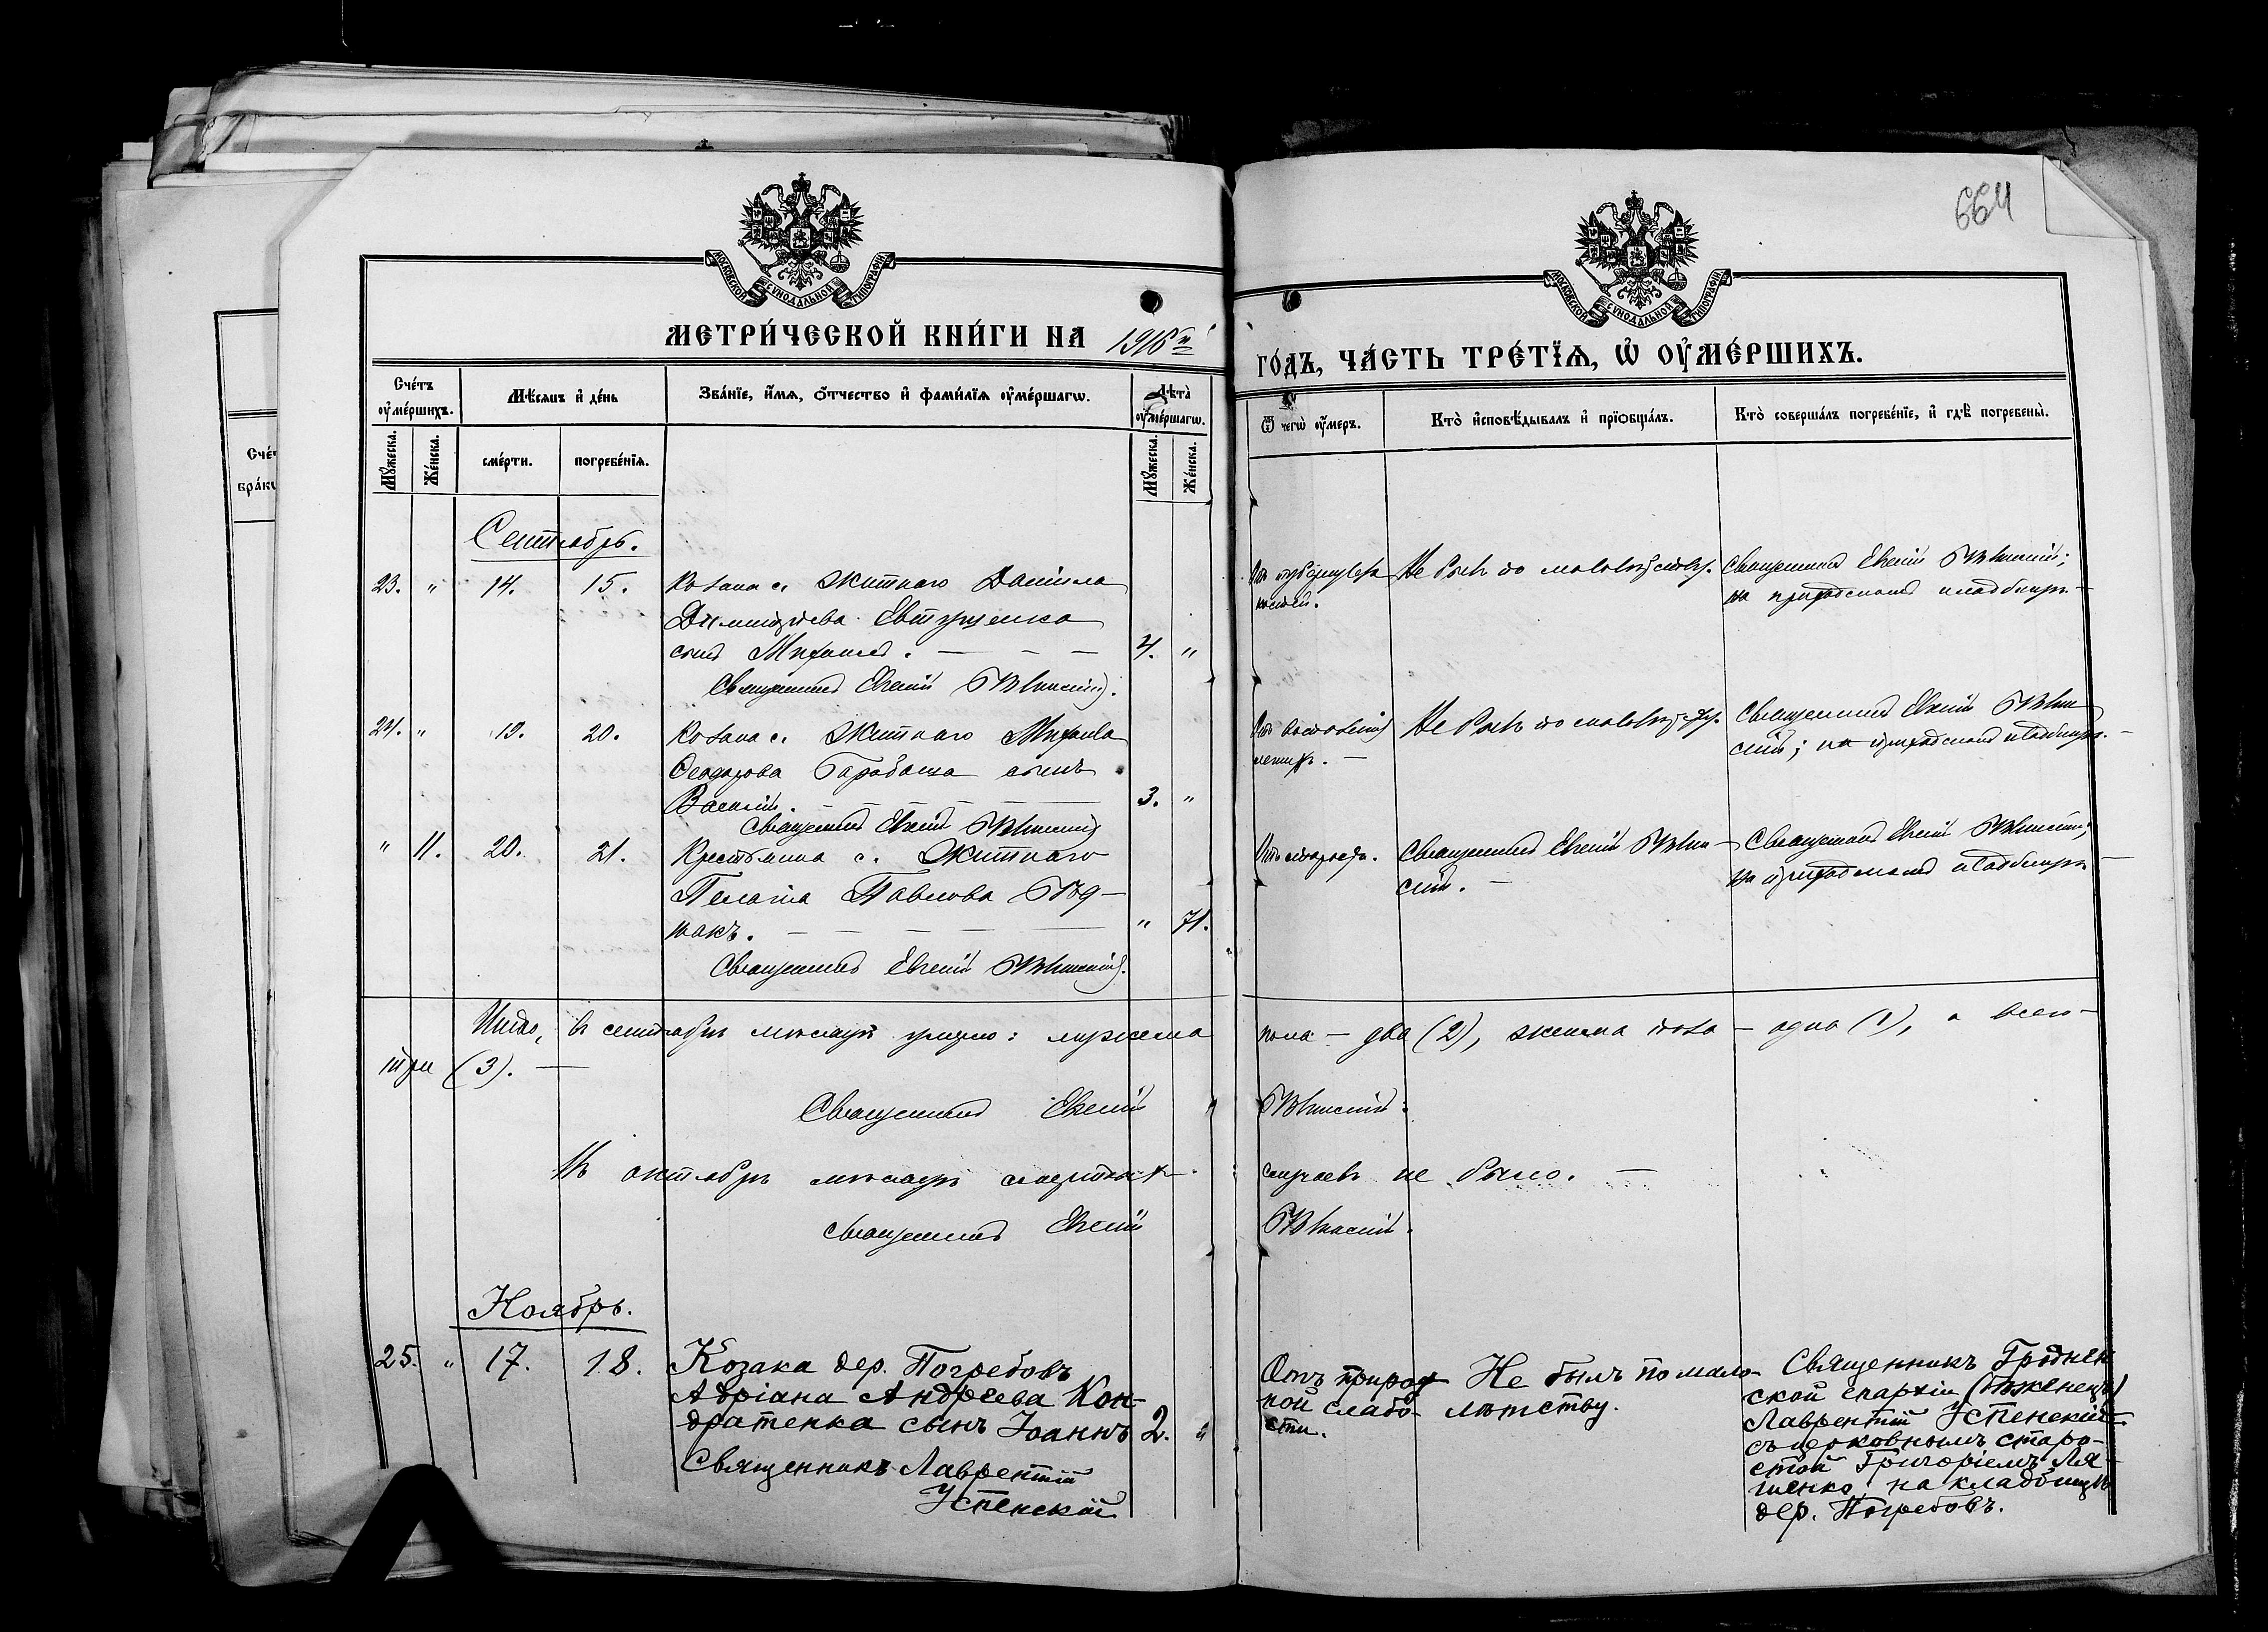 664
МОСКОВСКОЙ СѴНОДАЛЬНОЙ ТИПОГРАФІИ
МОСКОВСКОЙ СѴНОДАЛЬНОЙ ТИПОГРАФІИ
МЕТРИ́ЧЕСКОЙ КНИ́ГИ НА 1916й
ГО́ДЪ, ЧА́СТЬ ТРЕ́ТЇѦ, Ѡ ОУМЕ́РШИХЪ.
Сче́тъ оумершихъ.
Мꙋжеска.
Же́нска.
Мѣсяцъ и де́нь
сме́рти.
погребе́нїя.
Зва́нїе, и́мя, о́тчество и фами́лїя оуме́ршагѡ.
Лѣта̀ оуме́ршагѡ.
Мꙋжеска.
Же́нска.
Ѿ чегѡ̀ оу́меръ.
Кто̀ исповѣ́дывалъ и прїѡбща́лъ.
Кто̀ соверша́лъ погребе́нїе, и гдѣ̀ погребены̀.
Сентябрь.
23. " 14. 15. Козака с. Житнаго Даніила
Димитріева Евтушенка
сынъ Михаилъ. 4. "
Священникъ Евгеній
Не былъ по малолѣтству.
Священникъ Евгеній
на приходскомъ кладбищѣ
24. " 19. 20. Козака с. Житнаго Михаила
Ѳеодорова Барабаша сынъ
Василій. 3. "
Священникъ Евгеній
Не былъ по малолѣтству.
Священникъ Евгеній
на приходскомъ кладбищѣ.
" 11. 20. 21. Крестьянка с. Житнаго
Пелагія Павлова
" 71.
Священникъ Евгеній
Отъ старости.
Священникъ Евгеній
Священникъ Евгеній
на приходскомъ кладбищѣ
Итого, въ сентябрѣ мѣсяцѣ умерло: мужеска пола - два (2), женска пола - одна (1), а всего -
три (3).
Священникъ Евгеній
Въ октябрѣ мѣсяцѣ смертныхъ случаевъ не было.
Священникъ Евгеній
Ноябрь.
25. " 17. 18. Козака дер. Погребовъ
Адріана Андреева Кон-
дратенка сынъ Іоаннъ 2. "
Священникъ Лаврентій
Успенскій
Отъ природ
ной слабо-
сти.
Не былъ по мало-
лѣтству.
Священникъ Гроднен
ской епархіи (бѣженецъ)
Лаврентій Успенскій
съ церковнымъ старо-
стой Григоріемъ Ля-
шенко, на кладбищѣ
дер. Погребовъ.